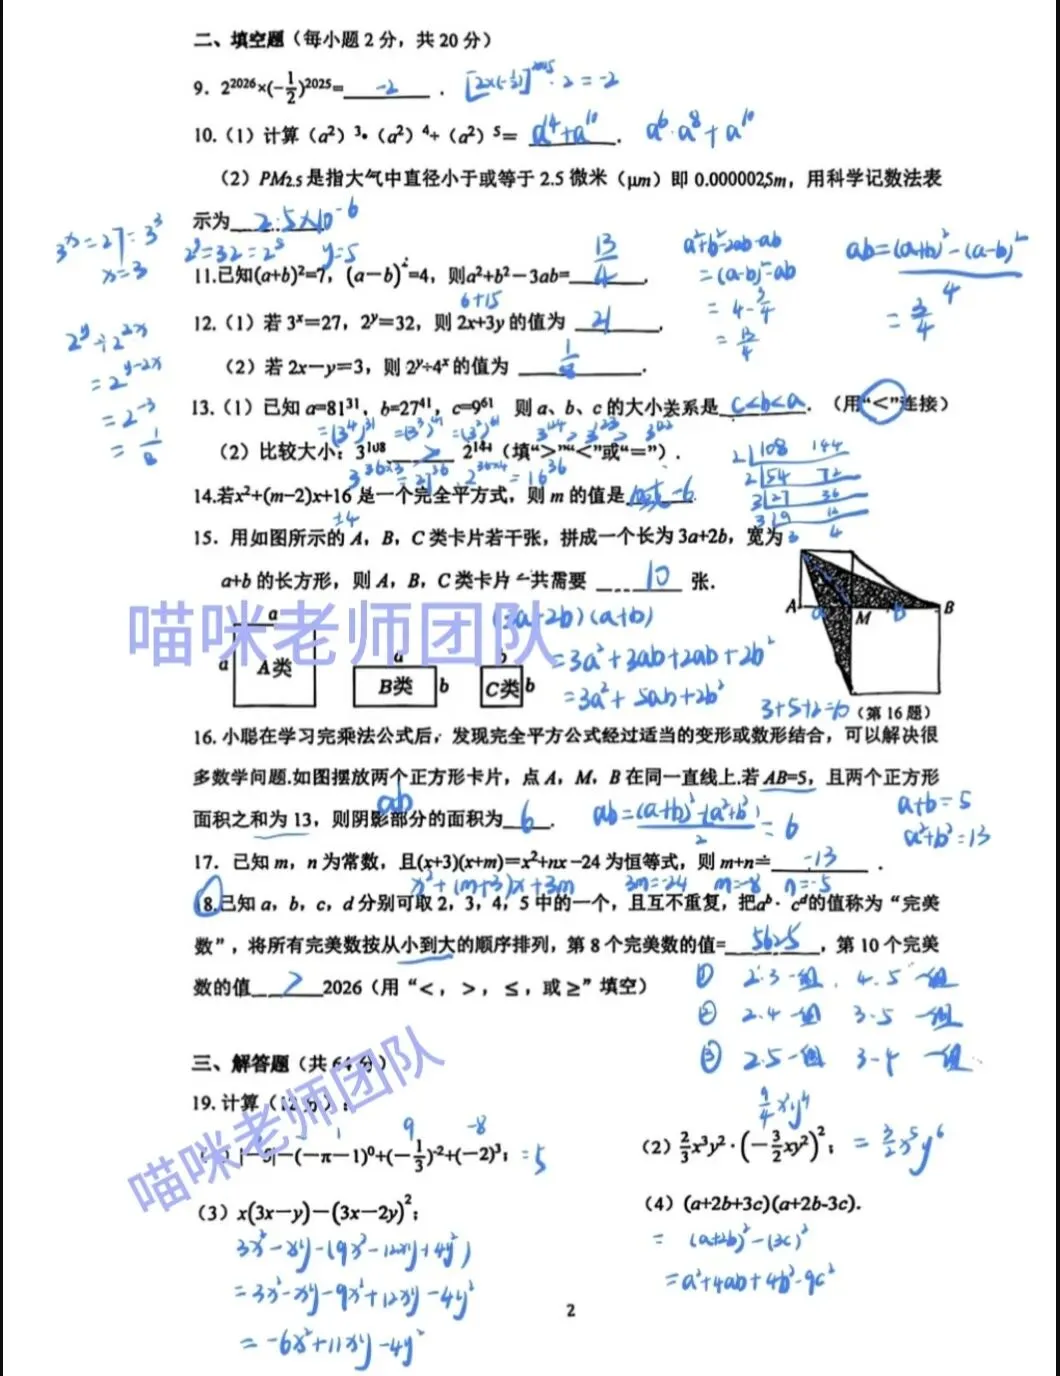 二、填空题（每小题2分，共20分）
9．2²⁰²⁶×(-1/2)²⁰²⁵=-2． [2×(-1/2)]²⁰²⁵·2=-2
10.（1）计算（a²）³•（a²）⁴+（a²）⁵= a¹⁴+a¹⁰． a⁶·a⁸+a¹⁰
（2）PM2.5是指大气中直径小于或等于2.5微米（μm）即0.0000025m，用科学记数法表
示为 2.5×10⁻⁶
3ˣ=27=3³ 2ʸ=32=2⁵ y=5
x=3
11.已知(a+b)²=7，(a-b)²=4，则a²+b²-3ab=13/4．
a²+b²-2ab-ab
=(a-b)²-ab
=4-3/4
=13/4
ab=(a+b)²-(a-b)²/4
=3/4
6+15
12.（1）若3ˣ=27，2ʸ=32，则2x+3y的值为 21．
（2）若2x-y=3，则2ʸ÷4ˣ的值为 1/8．
2ʸ÷2²ˣ
=2ʸ⁻²ˣ
=2⁻³
=1/8
13.（1）已知a=81³¹，b=27⁴¹，c=9⁶¹ 则a、b、c的大小关系是 c<b<a．（用“<”连接）
=(3⁴)³¹ =(3³)⁴¹ =(3²)⁶¹ 3¹²⁴>3¹²³>3¹²²
（2）比较大小：3¹⁰⁸ > 2¹⁴⁴（填“>”“<”或“=”）．
3³⁶ˣ³=27³⁶ 2³⁶ˣ⁴=16³⁶
2 108 144
2 54 72
3 27 36
3 9 12
3 4
14.若x²+(m-2)x+16是一个完全平方式，则m的值是 -6．
±4
15．用如图所示的A，B，C类卡片若干张，拼成一个长为3a+2b，宽为
a+b的长方形，则A，B，C类卡片一共需要 10 张．
(3a+2b)(a+b)
=3a²+3ab+2ab+2b²
=3a²+5ab+2b²
3+5+2=10
a
a A类
a
B类 b
b
C类 b
A a M b B
（第16题）
喵咪老师团队
16.小聪在学习完乘法公式后，发现完全平方公式经过适当的变形或数形结合，可以解决很
多数学问题.如图摆放两个正方形卡片，点A，M，B在同一直线上.若AB=5，且两个正方形
ab
面积之和为13，则阴影部分的面积为 6．
ab=(a+b)²-(a²+b²)/2=6
a+b=5
a²+b²=13
17．已知m，n为常数，且(x+3)(x+m)=x²+nx-24为恒等式，则m+n=-13．
x²+(m+3)x+3m 3m=-24 m=-8 n=-5
18.已知a，b，c，d分别可取2，3，4，5中的一个，且互不重复，把aᵇ·cᵈ的值称为“完美
数”，将所有完美数按从小到大的顺序排列，第8个完美数的值=5625，第10个完美
数的值 > 2026（用“<，>，≤，或≥”填空）
① 2.3一组．4.5一组
② 2.4一组 3.5一组
③ 2.5一组 3-4一组
三、解答题（共64分）
19.计算（12分）：
1 9 -8
-(-π-1)⁰+(-1/3)⁻²+(-2)³；=5
9/4x²y⁴
（2）2/3x³y²·(-3/2xy²)²；=3/2x⁵y⁶
（3）x(3x-y)-(3x-2y)²；
3x²-xy-(9x²-12xy+4y²)
=3x²-xy-9x²+12xy-4y²
=-6x²+11xy-4y²
（4）(a+2b+3c)(a+2b-3c).
=(a+2b)²-(3c)²
=a²+4ab+4b²-9c²
喵咪老师团队
2